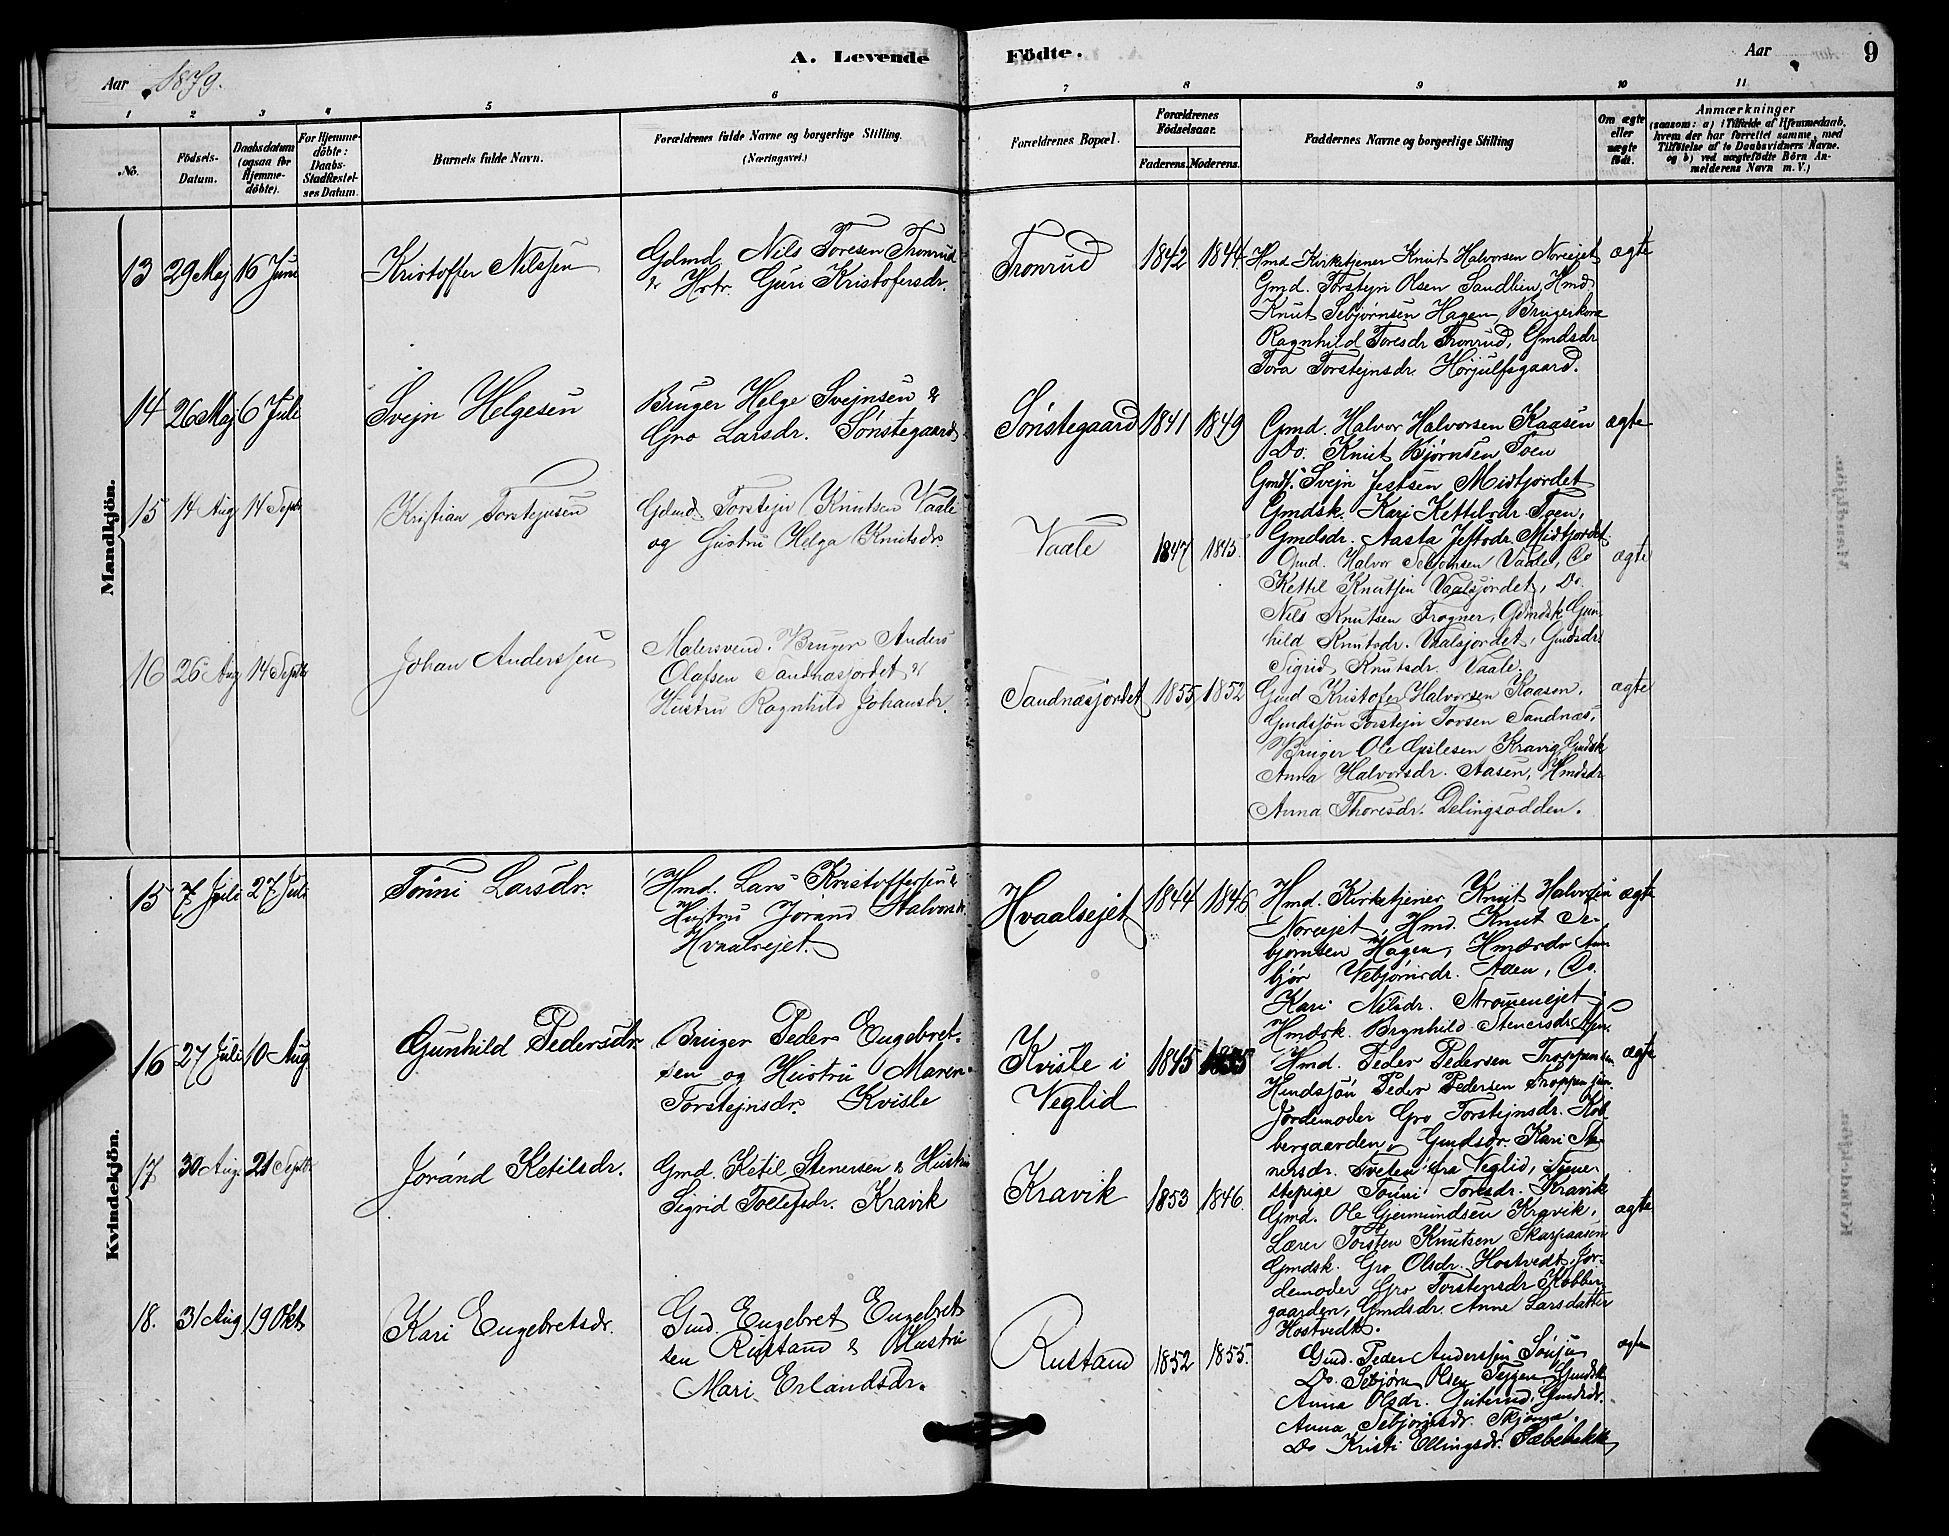 A. Levende Födte.
Aar 1879.
Aar
9
1 2 3 4 5 6 7 8 9 10 11
No.
Födsels-Datum.
Daabsdatum (ogsaa for Hjemme-döbte).
For Hjemme-döbte: Daabs-Stadfæstel-ses Datum.
Barnets fulde Navn.
Forældrenes fulde Navne og borgerlige Stilling.
(Næringsvei.)
Forældrenes Bopæl.
Forældrenes Födselsaar.
Faderens. Moderens.
Faddernes Navne og borgerlige Stilling
Om ægte eller uægte födt.
Anmærkninger
(saasom: a) i Tilfælde af Hjemmedaab,
hvem der har forrettet samme, med
Tilföielse af to Daabsvidners Navne.
og b) ved uægtefödte Börn An-
melderens Navn m. V.)
Mandkjön.
13 29 Maj 16 Juni
Kristoffer Nilssen
Gdmd Nils Toresen Tronrud
& Hstr. Guri Kristofersdr.
Tronrud 1842 1844.
Hmd Kirketjener Knut Halvorsen Noreejet
Gmd. Torstejn Olsen Sandlien, Hmd.
Knut Sebjørnsen Hagen, Brugerkone
Ragnhild Toresdr Tronrud, Gmdsdr
Tora Torstejnsdr. Herjulfsgaard.
ægte
14 26 Maj 6 Juli
Svejn Helgesen
Bruger Helge Svejnsen &
Gro Larsdr. Sønstegaard
Sønstegaard 1841 1849
Gmd. Halvor Halvorsen Kaasen
Do. Knut Bjørnsen Toen
Gmds. Svejn Jestsen Midtjordet
Gmdsk. Kari Kettilsdr Toen,
Gmdsdr. Aasta Jestsdr Midtjordet
ægte
15 14 Aug 14 Septb
Kristian Torstejnsen
Gdmd Torstejn Knutsen Vaale
og Hustru Helga Knutsdr.
Vaale 1847 1845.
Gmd. Halvor Vaale, Do
Kettil Knutsen Vaalsjordet, Do.
Nils Knutsen Frogner, Gdmdsk Gun-
hild Knutsdr. Vaalsjordet, Gmdsdr.
Sigrid Knutsdr. Vaale.
ægte
16 26 Aug 14 Septb
Johan Anderssen
Malersvend. Bruger Anders
Olafsen Sandnæsjordet &
Hustru Ragnhild Johansdr.
Sandnæsjordet 1855 1852
Gmd Kristofer Halvorsen Kaasen,
Gmdsjøn Torstejn Torsen Sandnæs,
Bruger Ole Gislesen Kravig, Gmdsk
Anna Halvorsdr. Aasen, Hmdsdr
Anna Thoresdr. Delingsodden.
ægte
Kvindekjön.
15 7 Juli 27 Juli
Tønni Larsdr.
Hmd. Lars Kristoffersen &
Hustru Jørand Halvorsdr
Hvaalsejet.
Hvaalsejet 1844 1846
Hmd. Kirketjener Knut Halvorsen
Noreejet, Hmd. Knut Se-
bjørnsen Hagen, Hmdsdr Am-
bjør Vebjørnsdr. Aaen, Do.
Kari Nilsdr. Strømenejet
Hmdsk. Brynhild Stenersdr
ægte
16 27 Juli 10 Aug
Gunhild Pedersdr.
Bruger Peder Engebret-
sen og Hustru Maren
Torstejnsdr. Kvisle
Kvisle i
Veglid
1845 1855
Hmd. Peder Pedersen Troppen sen
Hmdsjøn Peder Pedersen Troppen jun.
Jordemoder Gro Torstejnsdr. Kob-
bergaarden, Gmdsdr. Kari Ste-
nersdr. Tveten fra Veglid, Tjene-
stepige Tønni Toresdr. Kravik
ægte
17 30 Aug. 21 Septb
Jørånd Ketilsdr.
Gmd. Ketil Stenersen & Hustru
Sigrid Tollefsdr. Kravik
Kravik 1853 1846.
Gmd. Ole Gjermundsen Kravik,
Lærer Torsten Knutsen Skarpaasen
Gmdsk. Gro Olsdr. Hostvedt, Jor-
demoder Gro Torstensdr Kobber-
gaarden, Gmdsdr. Anne Larsdatter
Hostvedt.
ægte
18. 31 Aug 19 Okt
Kari Engebretsdr.
Gmd Engebret Engebret
sen Rustand & Hustru
Mari Erlandsdr.
Rustand 1852 1855.
Gmd. Peder Anderssen Sønju
Do. Sebjørn Olsen Teigen Gmdsk
Anna Olsdr. Guterud Gmdsdr.
Anna Sebjørnsdr. Skjønna.
Do Kristi Ellingsdr.
ægte